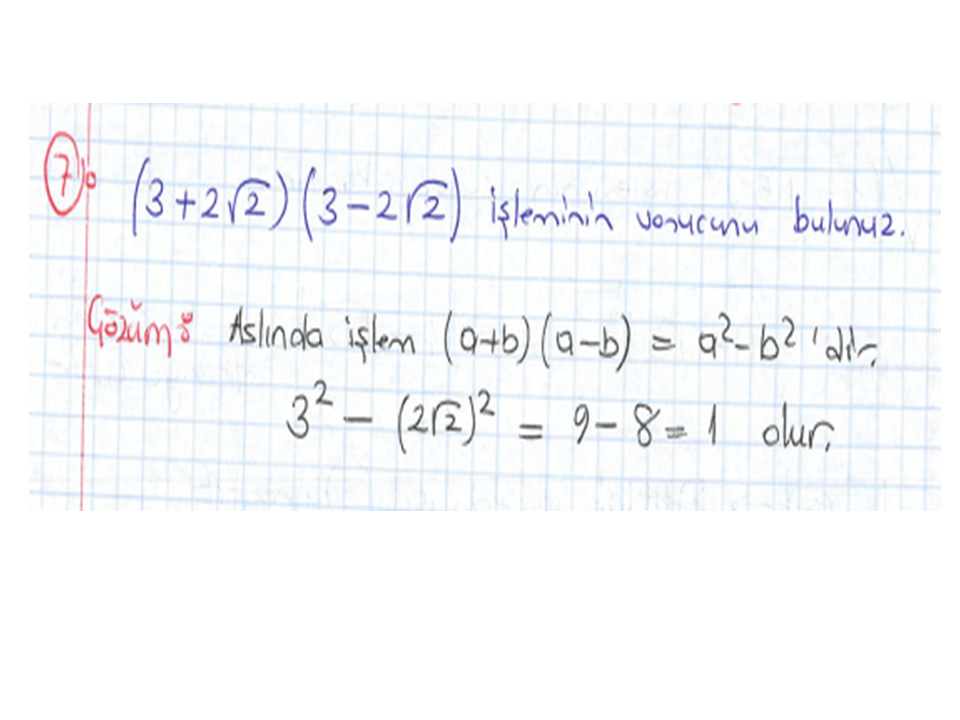 7: (3+2√2)(3-2√2) işleminin sonucunu bulunuz.
Çözüm: Aslında işlem (a+b)(a-b) = a²-b² 'dir.
3² - (2√2)² = 9-8=1 olur.